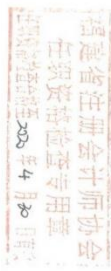 福建省注册会计师协会
任职资格检查专用章
2020 年 4 月 30 日